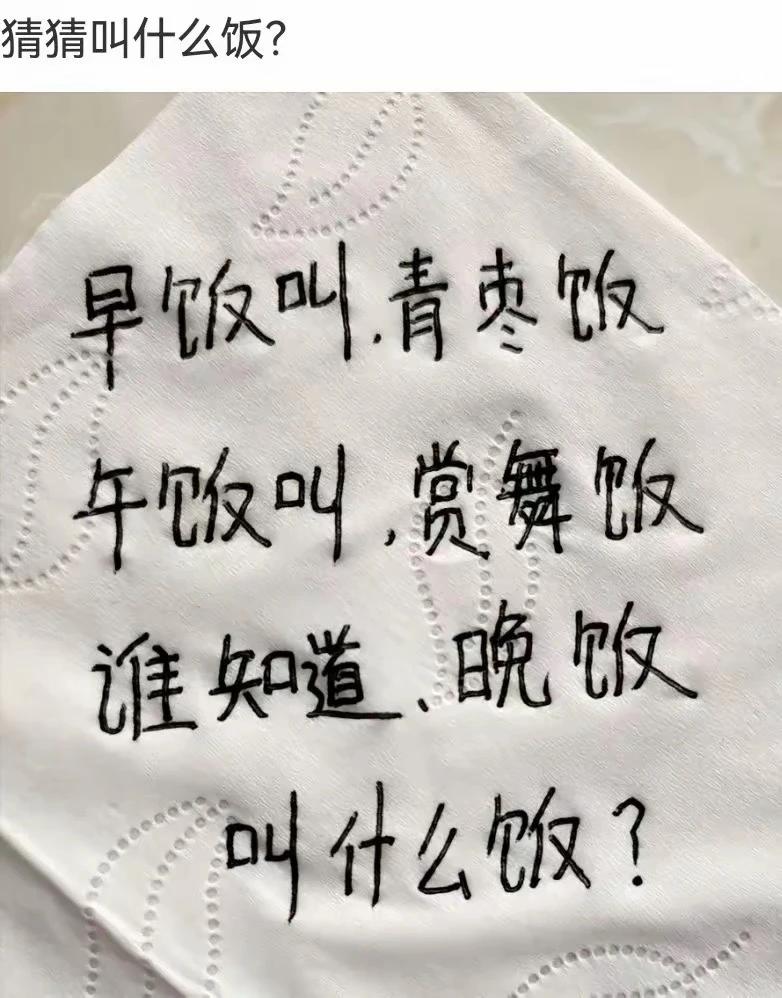 猜猜叫什么饭?
早饭叫,青枣饭
午饭叫,赏舞饭
谁知道、晚饭
叫什么饭?